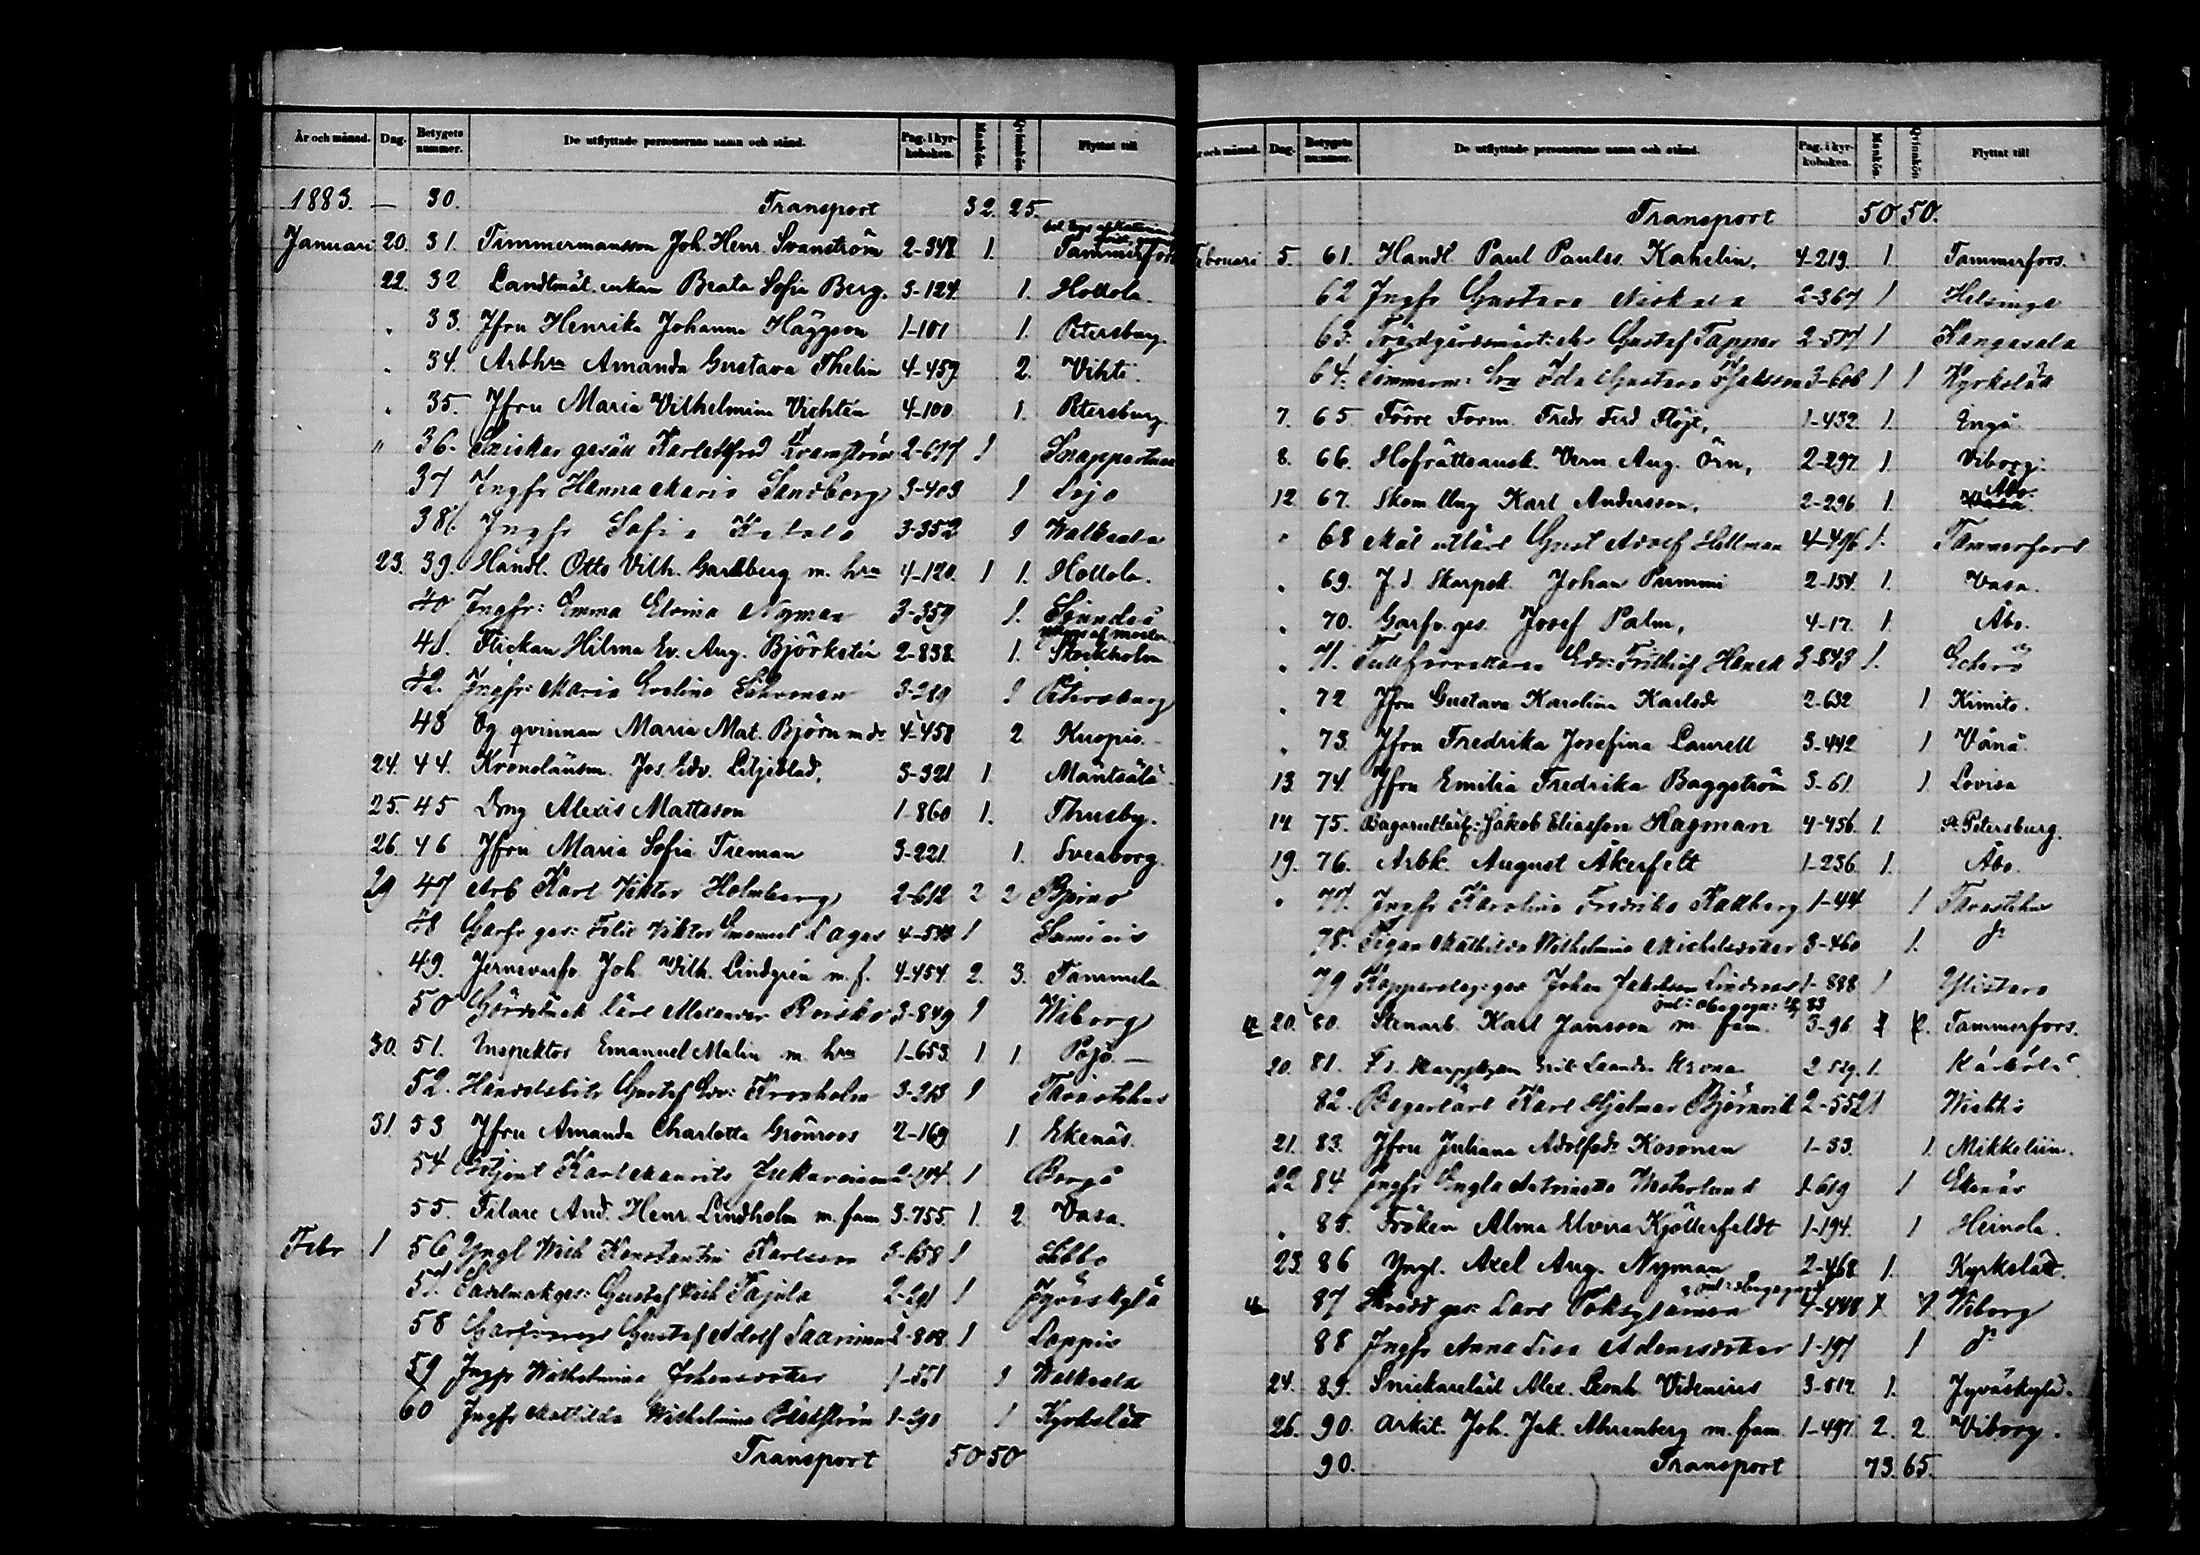 År och månad. Dag. Betygets nummer. De utflyttade personernas namn och stånd. Pag. i kyrkoboken. Mankön. Qvinnkön. Flyttat till
1883. — 30. Transport 32. 25.
Januari 20. 31. Timmermansson Joh. Henr. Svanström 2-348 1. Tammerfors
22. 32 Landtmät. enkan Beata Sofia Berg. 3-124. 1. Hollola.
" 33. Jfru Henrika Johanna Häggson 1-101 1. Petersburg.
" 34. Arbhru Amanda Gustava Thelin 4-459 2. Vihti.
" 35. Jfru Maria Vilhelmina Vichtén 4-100 1. Petersburg.
" 36. Snickar gesäll Karl Alfred 2-677 1 Snappertuna
37 Ingfr Hanna Maria Sandberg 3-403 1 Lojo
38. Ingfr Sofia 3-352 1 Walkeala
23. 39. Handl. Otto Vilh. Gardberg m. hru 4-120. 1 1. Hollola.
40 Ingfr: Emma Elvina Nyman 3-359 1. Sjundeå
41. Flickan Hilma Ev. Aug. Björkstén 2-838. 1. Stockholm
42. Ingfr: Maria Evelina 3-289 1 Petersburg
43 Og qvinnan Maria Mat. Björn m dr 4-458 2 Kuopio.
24. 44. Kronolänsm. Jos. Edv. Liljeblad. 3-321 1. Mäntsälä
25. 45 Dräng Alexis Mattsson 1-860 1. Thusby.
26. 46 Jfru Maria Sofia Treman 3-221. 1. Sveaborg.
29 47 Arb Karl Viktor Holmberg 2-612 2 2 Bjerno
48 Garfv ges: Felix Viktor Emanuel Lagus 4-543 1
49. Jernvarfv Joh. Vilh. Lindgrén m. f. 4-454. 2. 3. Tammela
50 lärl Alexander 3-849 1 Wiborg
30. 51. Inspektor Emanuel Malin m. hru 1-653. 1 1. Pojo. —
52. Handelsbitr Gustaf Edv: Kronholm 3-213 1 Tavastehus
31. 53 Jfru Amanda Charlotta Grönroos 2-169 1 Ekenäs.
54 Karl Maurits 2-104. 1 Borgå
55. Filare And. Henr. Lindholm m. fam 3-755. 1. 2. Vasa.
Febr 1 56 Yngl Wilh Konstantin Karlsson 3-658 1 Sibbo
57. Sadelmakges: Gustaf Wilh Tajola 2-291 1 Jyväskylä
58 Gustaf Adolf Saarinen 2-808 1 Lappis
59 Ingfr Wilhelmina Johansdotter 1-551 1 Walkeala
60 Ingfr Mathilda Wilhelmina Bäckström 1-290 1 Kyrkslätt
Transport 50 50
År och månad. Dag. Betygets nummer. De utflyttade personernas namn och stånd. Pag. i kyrkoboken. Mankön. Qvinnkön Flyttat till
Transport 50. 50.
Februari 5. 61. Handl Paul Paules Kahelin. 4-219. 1. Tammerfors.
62 Ingfr Gustava 2-367 1 Helsinge
63. Trädgårdsmäst: Gustaf Tapper 2-517 1 Kangasala
64. Timmerm: hru Ida Gustava 3-608 1 1 Kyrkslätt
7. 65 Förre Form. Fredr Ferd Flöjt, 1-432 1. Ingå.
8. 66. Hofrättsausk. Vern Aug. Örn, 2-297. 1. Viborg.
12 67. Skom Ung Karl Andersson. 2-296 1. Åbo.
" 68 Mål utlärl Gust Adolf Hellman 4-496 1. Tammerfors
" 69. F. d. Skarpsk. Johan Pummi 2-154. 1. Vasa.
" 70. Garfv. ges. Josef Palm, 4-17. 1. Åbo.
" 71. Tullförvaltaren Edv: Frithiof Hanek 3-843 1. Eckerö
" 72 Jfru Gustava Karolina Karlsdr 2-632 1 Kimito.
" 73. Jfru Fredrika Josefina Laurell 3-442 1 Vånå.
13 74. Jfru Emilia Fredrika Baggström 3-61. 1 Lovisa
14 75. Jakob Eliasson Hagman 4-456. 1. St Petersburg.
19. 76. Arbk. August Åkerfelt 1-236. 1. Åbo.
" 77. Ingfr Karolina Fredrika Kallberg 1-44 1 Tavastehus
78. Pigan Mathilda Wilhelmina Michelsdotter 3-460 1. do
79 Kopparslag: ges Johan Jakobsson Lindroos 1-888 1 Ylistaro
20. 80. Stenarb. Karl Jansson m. fam. 3-96. Tammerfors.
20. 81. Erik Leander Krona 2 529. 1. Kärkölä
82. Bagarlärl Karl Hjalmar Björnvik 2-552 1 Wichtis
21. 83. Jfru Juliana Adolfsdr Kosonen 1-33. 1. Mikkeliin.
22 84 Ingfr Engla Katrinetta Westerlund 1-619 1 Ekenäs
" 85. Fröken Alma Elvira Kjöllerfeldt 1-194. 1 Heinola.
23. 86 Yngl. Axel Aug. Nyman 2-468 1. Kyrkslätt.
87 4-448 Wiborg
88 Ingfr Anna Lisa Adamsdotter 1-197 1 do
24. 89. Snickarelärl Alex. Leonh. Videnius 3-817. 1. Jyväskylä.
26. 90. Arkit. Joh. Jak. Ahrenberg m. fam 1-497 2. 2. Viborg.
90. Transport 73. 65.